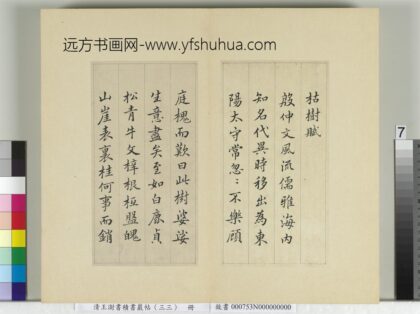 远方书画网-www.yfshuhua.com
枯樹賦
殷仲文風流儒雅海内
知名代異時移出為東
陽太守常忽〻不樂顧
庭槐而歎曰此樹婆娑
生意盡矣至如白鹿貞
松青牛文梓根柢盤魄
山崖表裏桂何事而銷
7
清王澍書積書巖帖(三三) 冊
故書000753N000000000